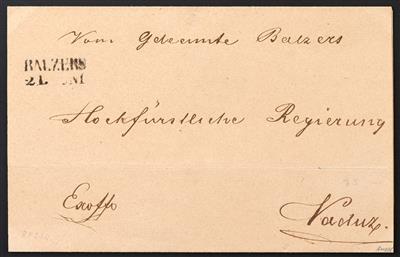 Vom Geleemte Balzers
BALZERS
21.
Hochfürstliche Regierung
Exoffo
Vaduz.